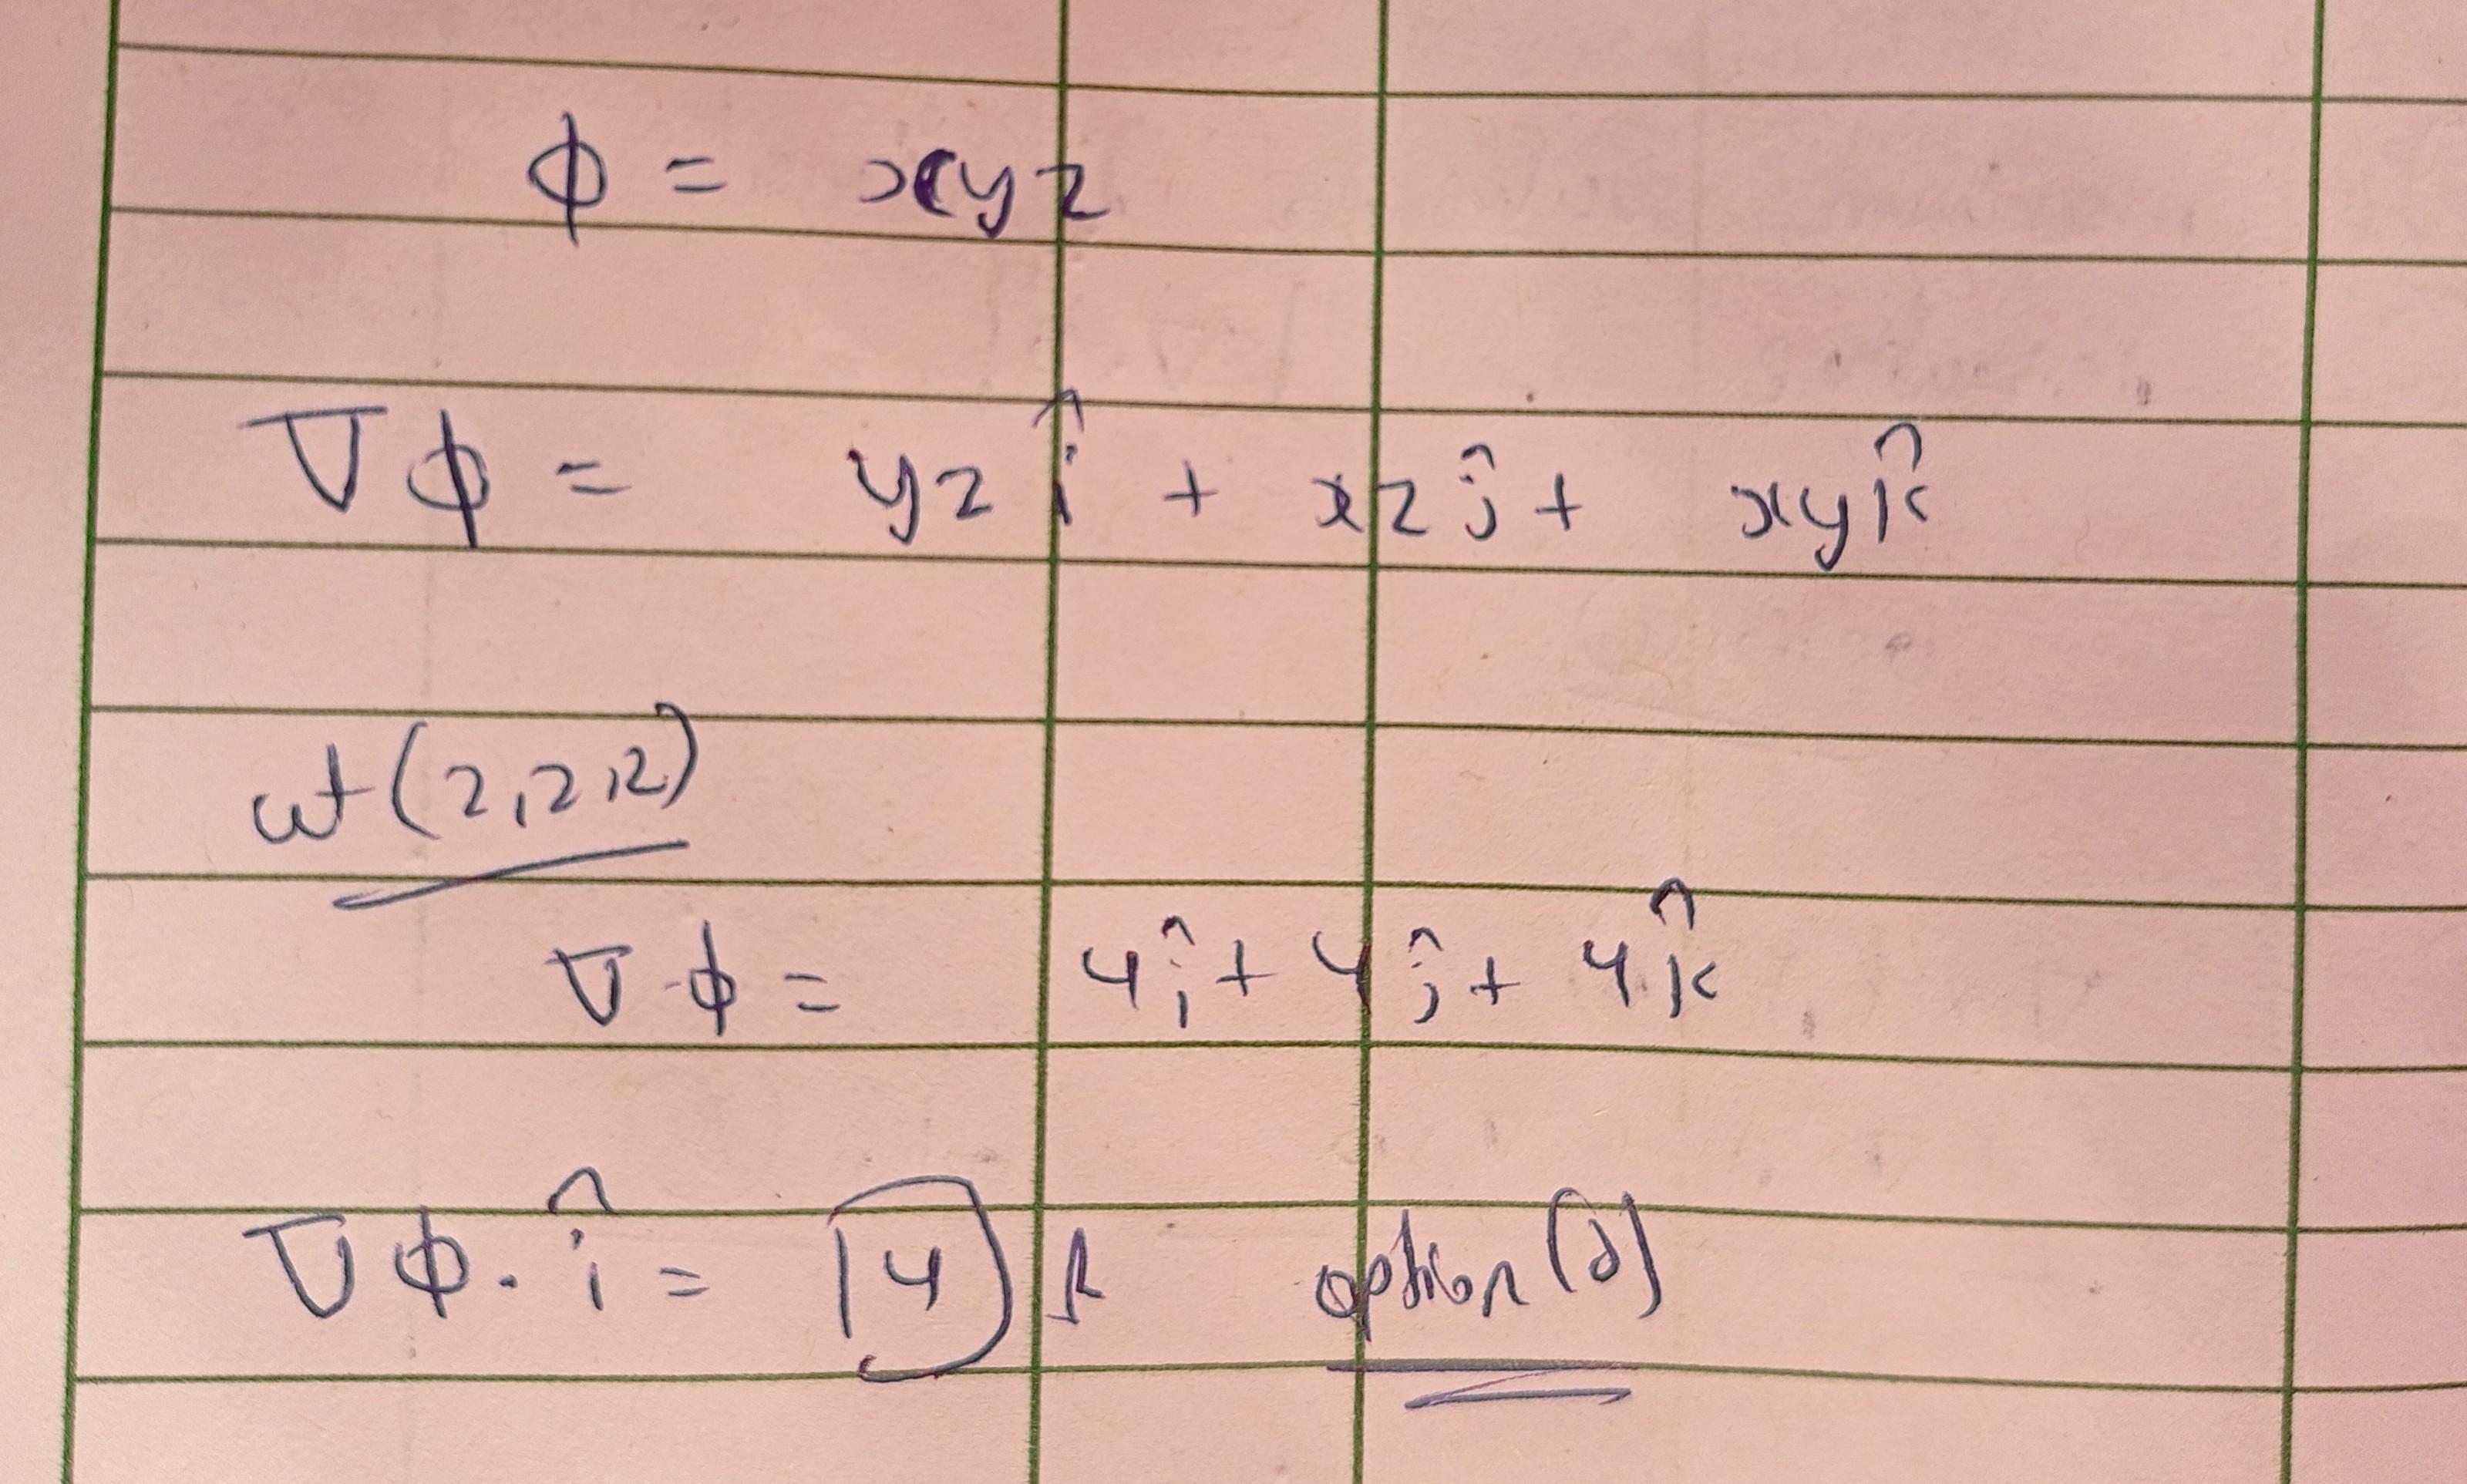 ϕ = xyz
∇ϕ = yz î + xz ĵ + xy k̂
at (2,2,2)
∇·ϕ = 4î + 4ĵ + 4k̂
∇ϕ · î = 4 option (d)